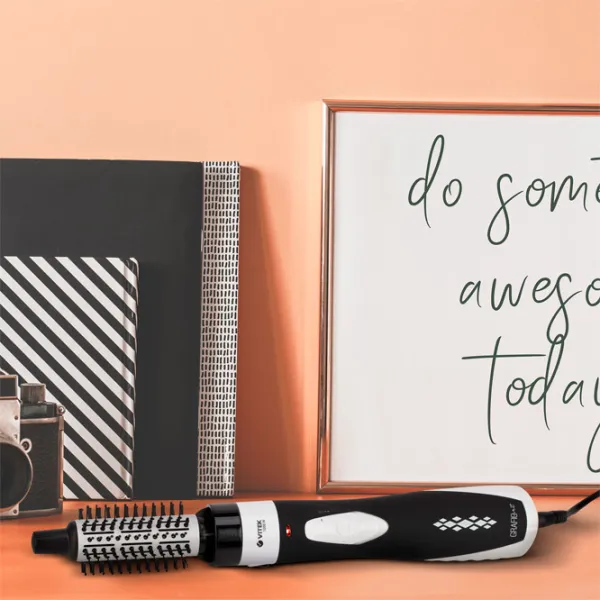 do som
aweso
today
VITEK
GRAFIE